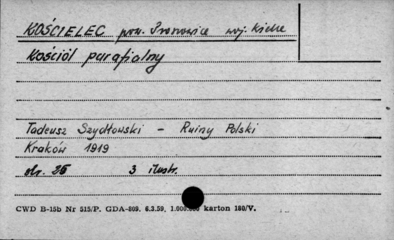 KOŚCIELEC pow. Proszowice woj. Kielce
Kościół parafialny
Tadeusz Szydłowski - Ruiny Polski
Kraków 1919
str. 25 3 ilustr.
CWD B-15b Nr 515/P. GDA-809. 6.3.59. karton 180/V.